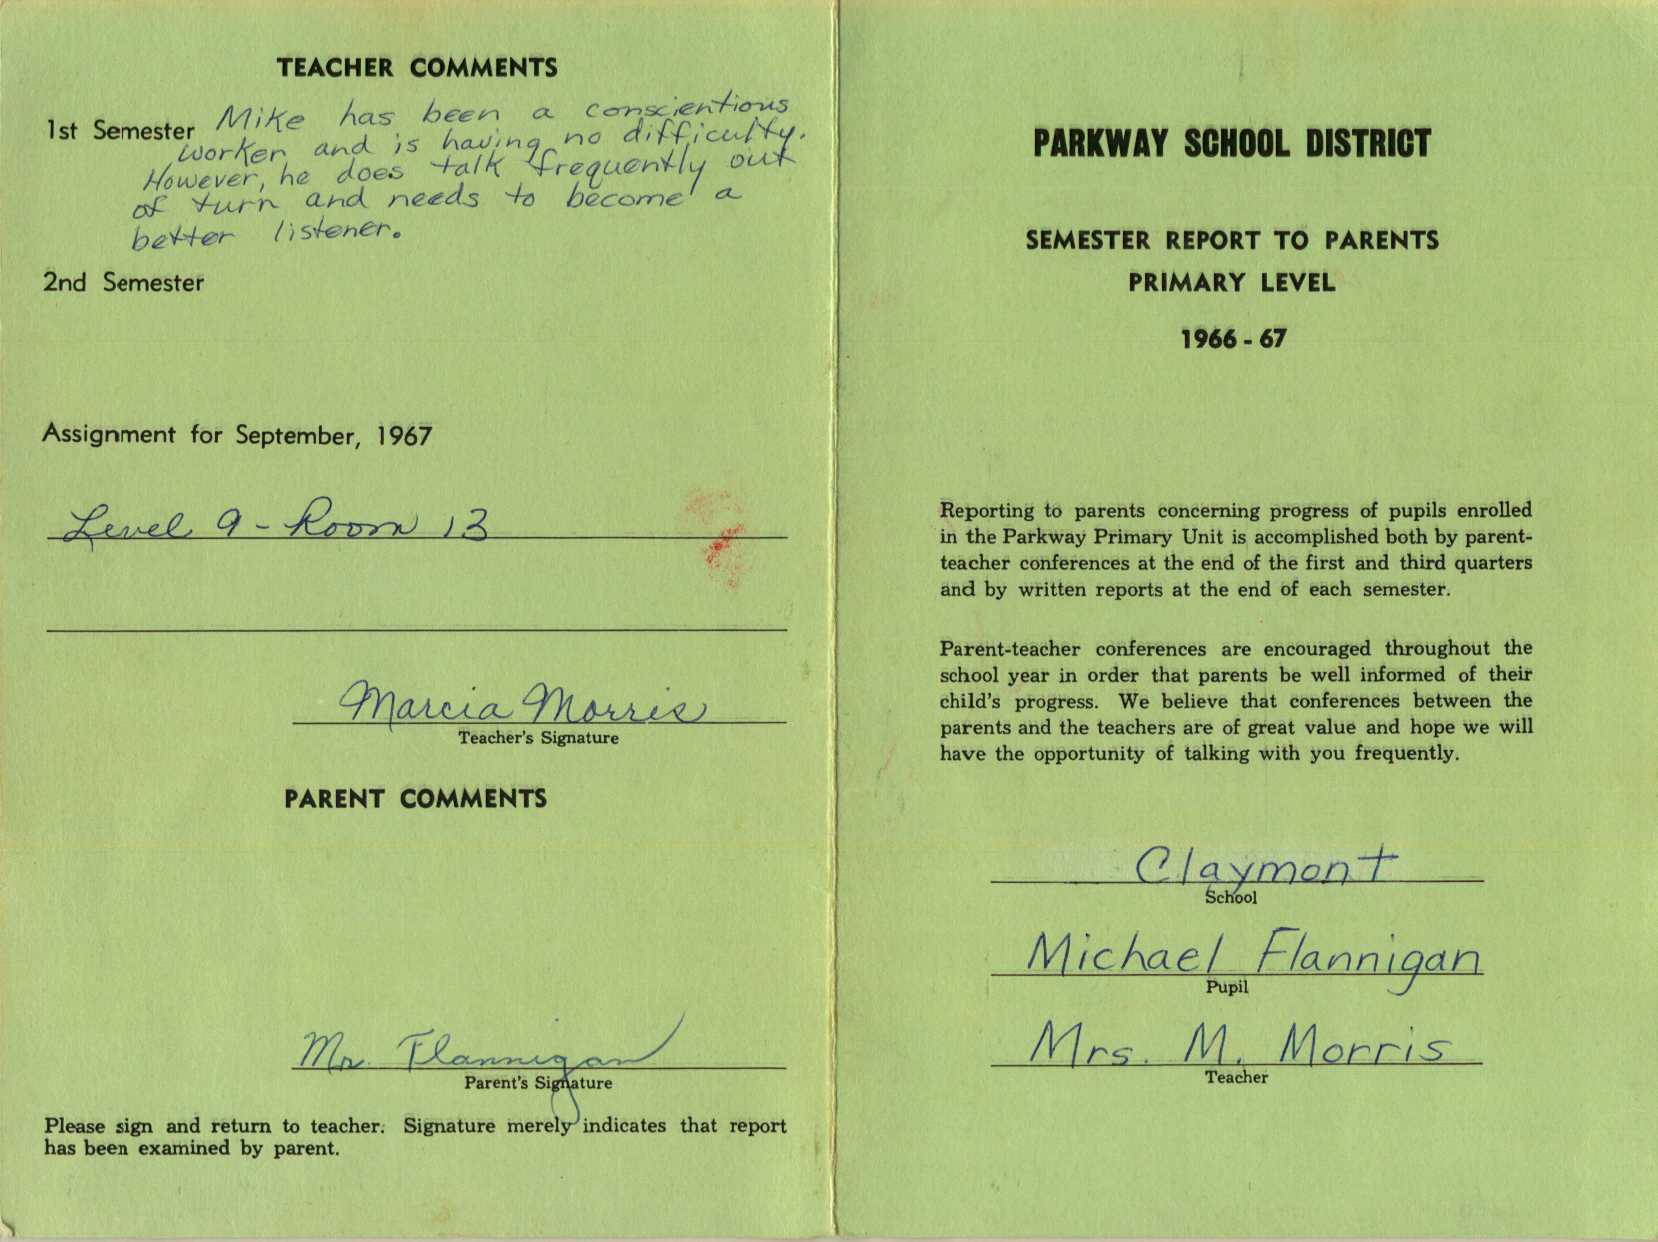 TEACHER COMMENTS
1st Semester Mike has been a conscientious
worker and is having no difficulty.
However, he does talk frequently out
of turn and needs to become a
better listener.
2nd Semester
Assignment for September, 1967
Level 9 - Room 13
Marcia Morris
Teacher's Signature
PARENT COMMENTS
Mr. Flannigan
Parent's Signature
Please sign and return to teacher. Signature merely indicates that report
has been examined by parent.
PARKWAY SCHOOL DISTRICT
SEMESTER REPORT TO PARENTS
PRIMARY LEVEL
1966 - 67
Reporting to parents concerning progress of pupils enrolled
in the Parkway Primary Unit is accomplished both by parent-
teacher conferences at the end of the first and third quarters
and by written reports at the end of each semester.
Parent-teacher conferences are encouraged throughout the
school year in order that parents be well informed of their
child's progress. We believe that conferences between the
parents and the teachers are of great value and hope we will
have the opportunity of talking with you frequently.
Claymont
School
Michael Flannigan
Pupil
Mrs. M. Morris
Teacher